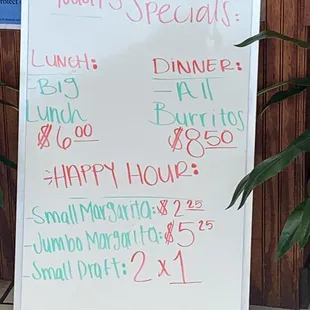 Today's Specials:
LUNCH: DINNER:
- Big - All
Lunch Burritos
$6.00 $8.50
HAPPY HOUR:
- Small Margarita: $2.25
- Jumbo Margarita: $5.25
- Small Draft: 2 x 1